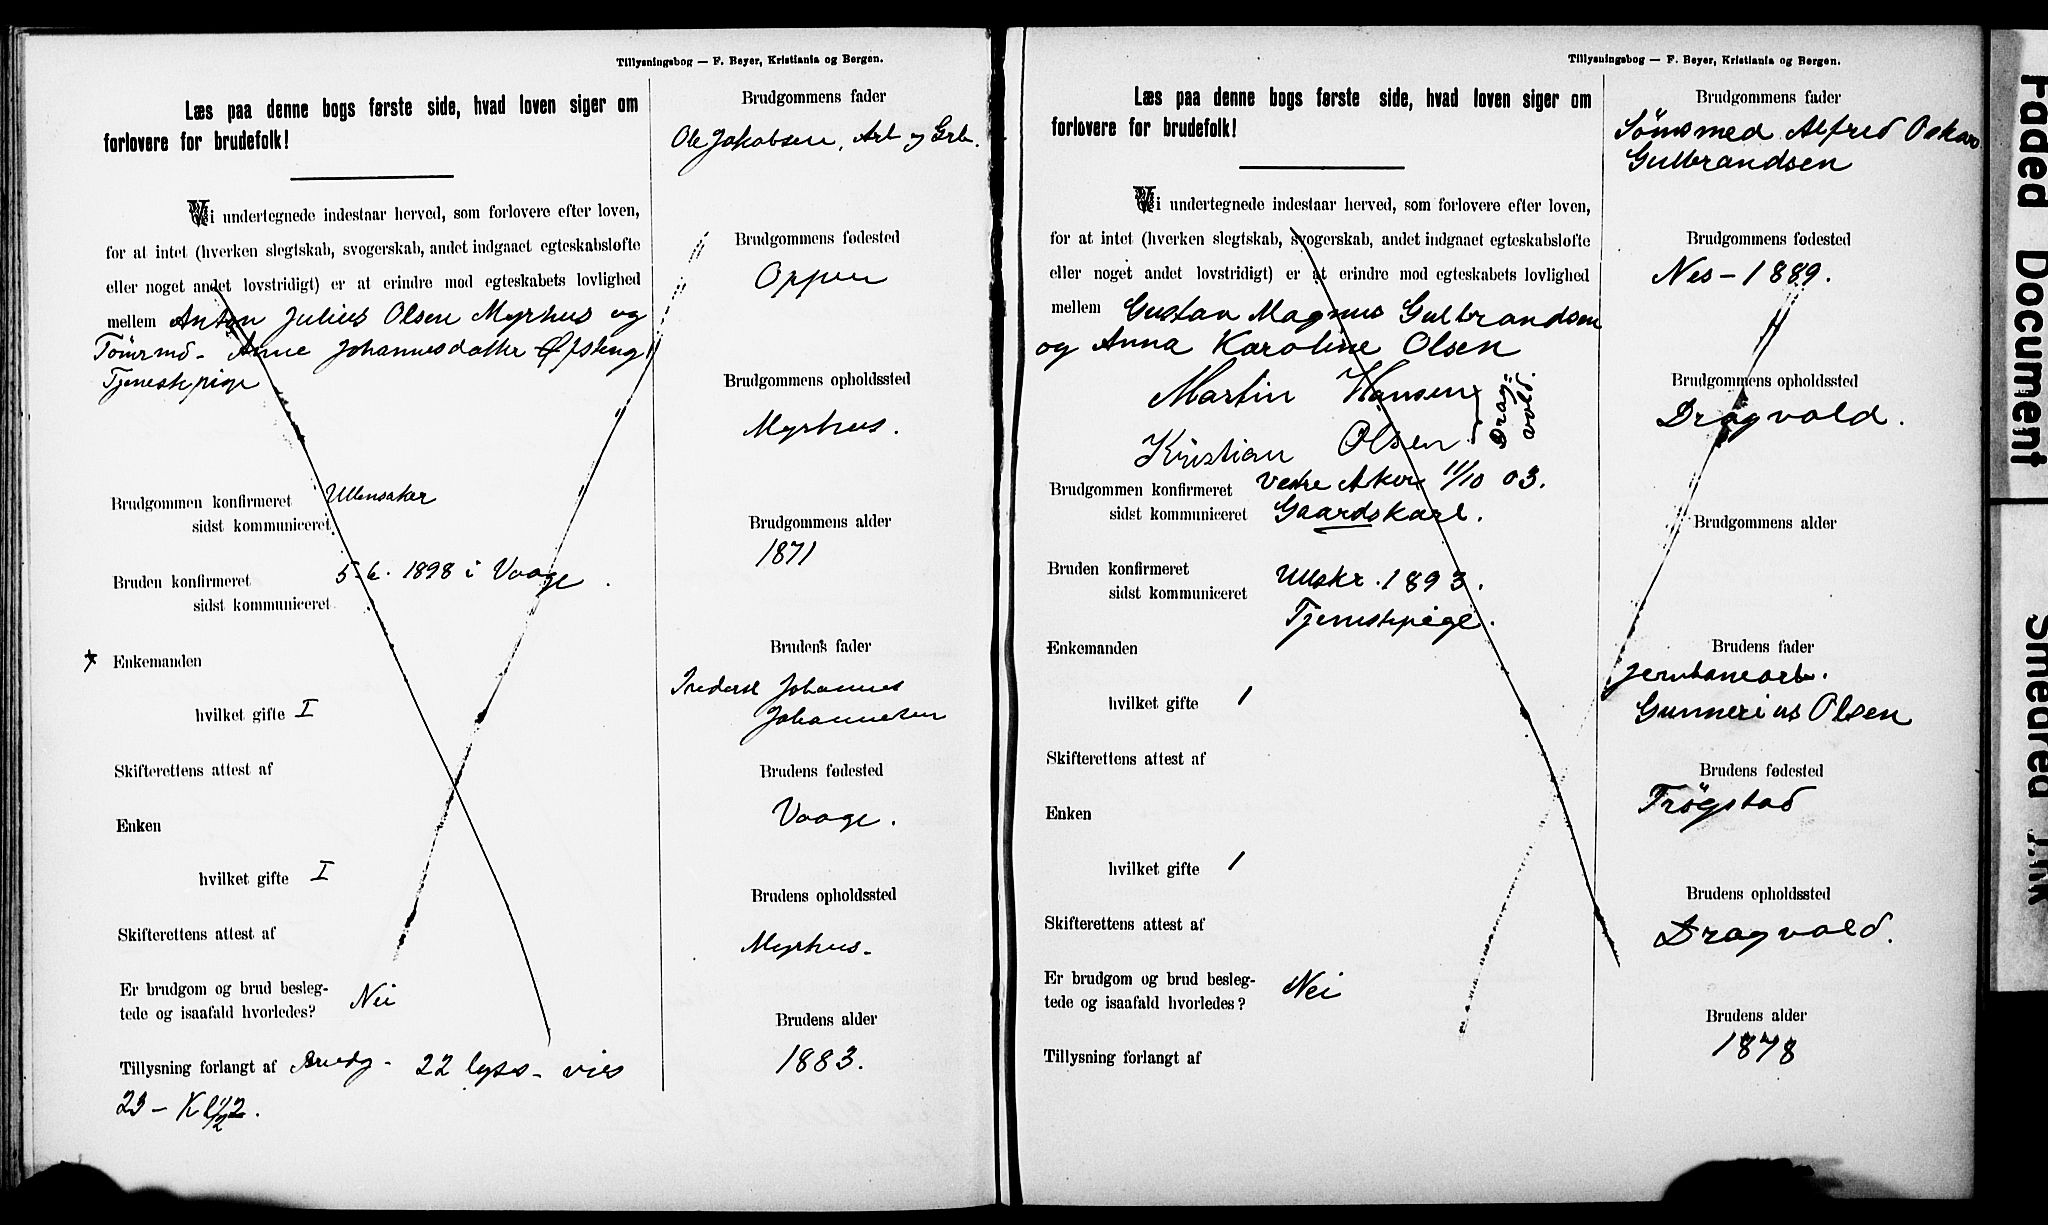 Tillysningsbog — F. Beyer, Kristiania og Bergen.
Læs paa denne bogs første side, hvad loven siger om
forlovere for brudefolk!
Vi undertegnede indestaar herved, som forlovere efter loven,
for at intet (hverken slegtskab, svogerskab, andet indgaaet egteskabsløfte
eller noget andet lovstridigt) er at erindre mod egteskabets lovlighed
mellem Anton Julius Olsen Myrhus og
Tömrmd - Anne Johannesdatter Øfsteng
Tjenestepige
Brudgommen konfirmeret Ullensaker
sidst kommuniceret
Bruden konfirmeret 5-6. 1898 i Vaage.
sidst kommuniceret
Enkemanden
hvilket gifte I
Skifterettens attest af
Enken
hvilket gifte I
Skifterettens attest af
Er brudgom og brud besleg-
tede og isaafald hvorledes? Nei
Tillysning forlangt af Brudg - 22 lyses - vies
23 - Kl
Brudgommens fader
Ole Jakobsen, Arb og Grb.
Brudgommens fødested
Oppen
Brudgommens opholdssted
Myrhus.
Brudgommens alder
1871
Brudens fader
Frederik Johannes
Johannesen
Brudens fødested
Vaage.
Brudens opholdssted
Myrhus-
Brudens alder
1883.
Tillysningsbog — F. Beyer, Kristiania og Bergen.
Læs paa denne bogs første side, hvad loven siger om
forlovere for brudefolk!
Vi undertegnede indestaar herved, som forlovere efter loven,
for at intet (hverken slegtskab, svogerskab, andet indgaaet egteskabsløfte
eller noget andet lovstridigt) er at erindre mod egteskabets lovlighed
mellem Gustav Magnus Gulbrandsen
og Anna Karoline Olsen
Martin Hansen
Kristian Olsen
Drag=
vold.
Brudgommen konfirmeret Vestre Aker 11/10 03.
sidst kommuniceret Gaardskarl.
Bruden konfirmeret Ullskr. 1893.
sidst kommuniceret
Tjenestepige.
Enkemanden
hvilket gifte 1
Skifterettens attest af
Enken
hvilket gifte 1
Skifterettens attest af
Er brudgom og brud besleg-
tede og isaafald hvorledes? Nei
Tillysning forlangt af
Brudgommens fader
Sömsmed Alfred Oskar
Gulbrandsen
Brudgommens fødested
Nes - 1889.
Brudgommens opholdssted
Dragvold.
Brudgommens alder
Brudens fader
Jernbanearb.
Gunnerius Olsen
Brudens fødested
Trögstad
Brudens opholdssted
Dragvold.
Brudens alder
1878
Faded Document
Smeared Ink